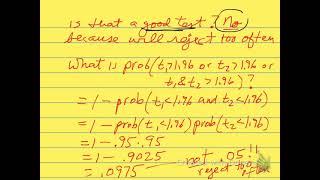 is that a good test? (no)
because will reject too often
What is prob(t,>1.96 or t2>1.96 or
t, & t2 > 1.96)?
= 1 - prob(t,<1.96 and t2<1.96)
= 1 - prob(t,<1.96)prob(t2<1.96)
= 1 - .95 .95
= 1 - .9025
= .0975 not .05!!
reject too
often